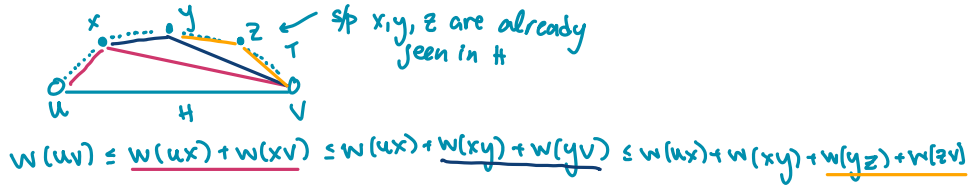 x y z s/p x,y,z are already
T seen in H
u H v
w(uv) ≤ w(ux) + w(xv) ≤ w(ux) + w(xy) + w(yv) ≤ w(ux) + w(xy) + w(yz) + w(zv)